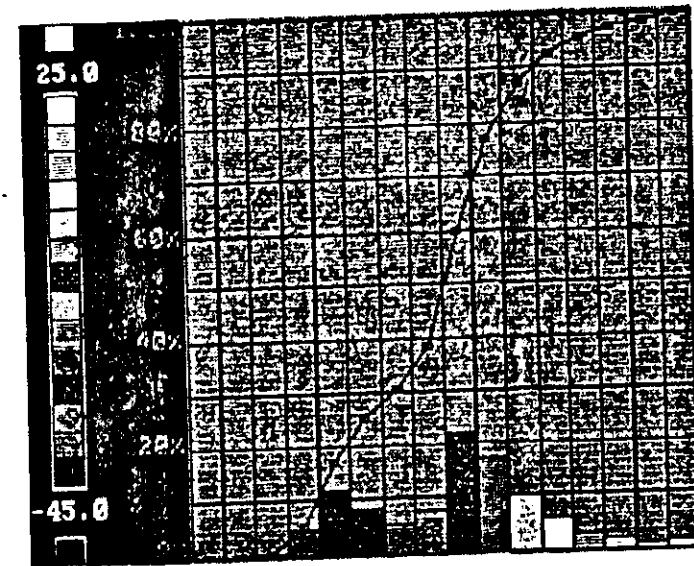 25.0
80%
60%
40%
20%
-45.0